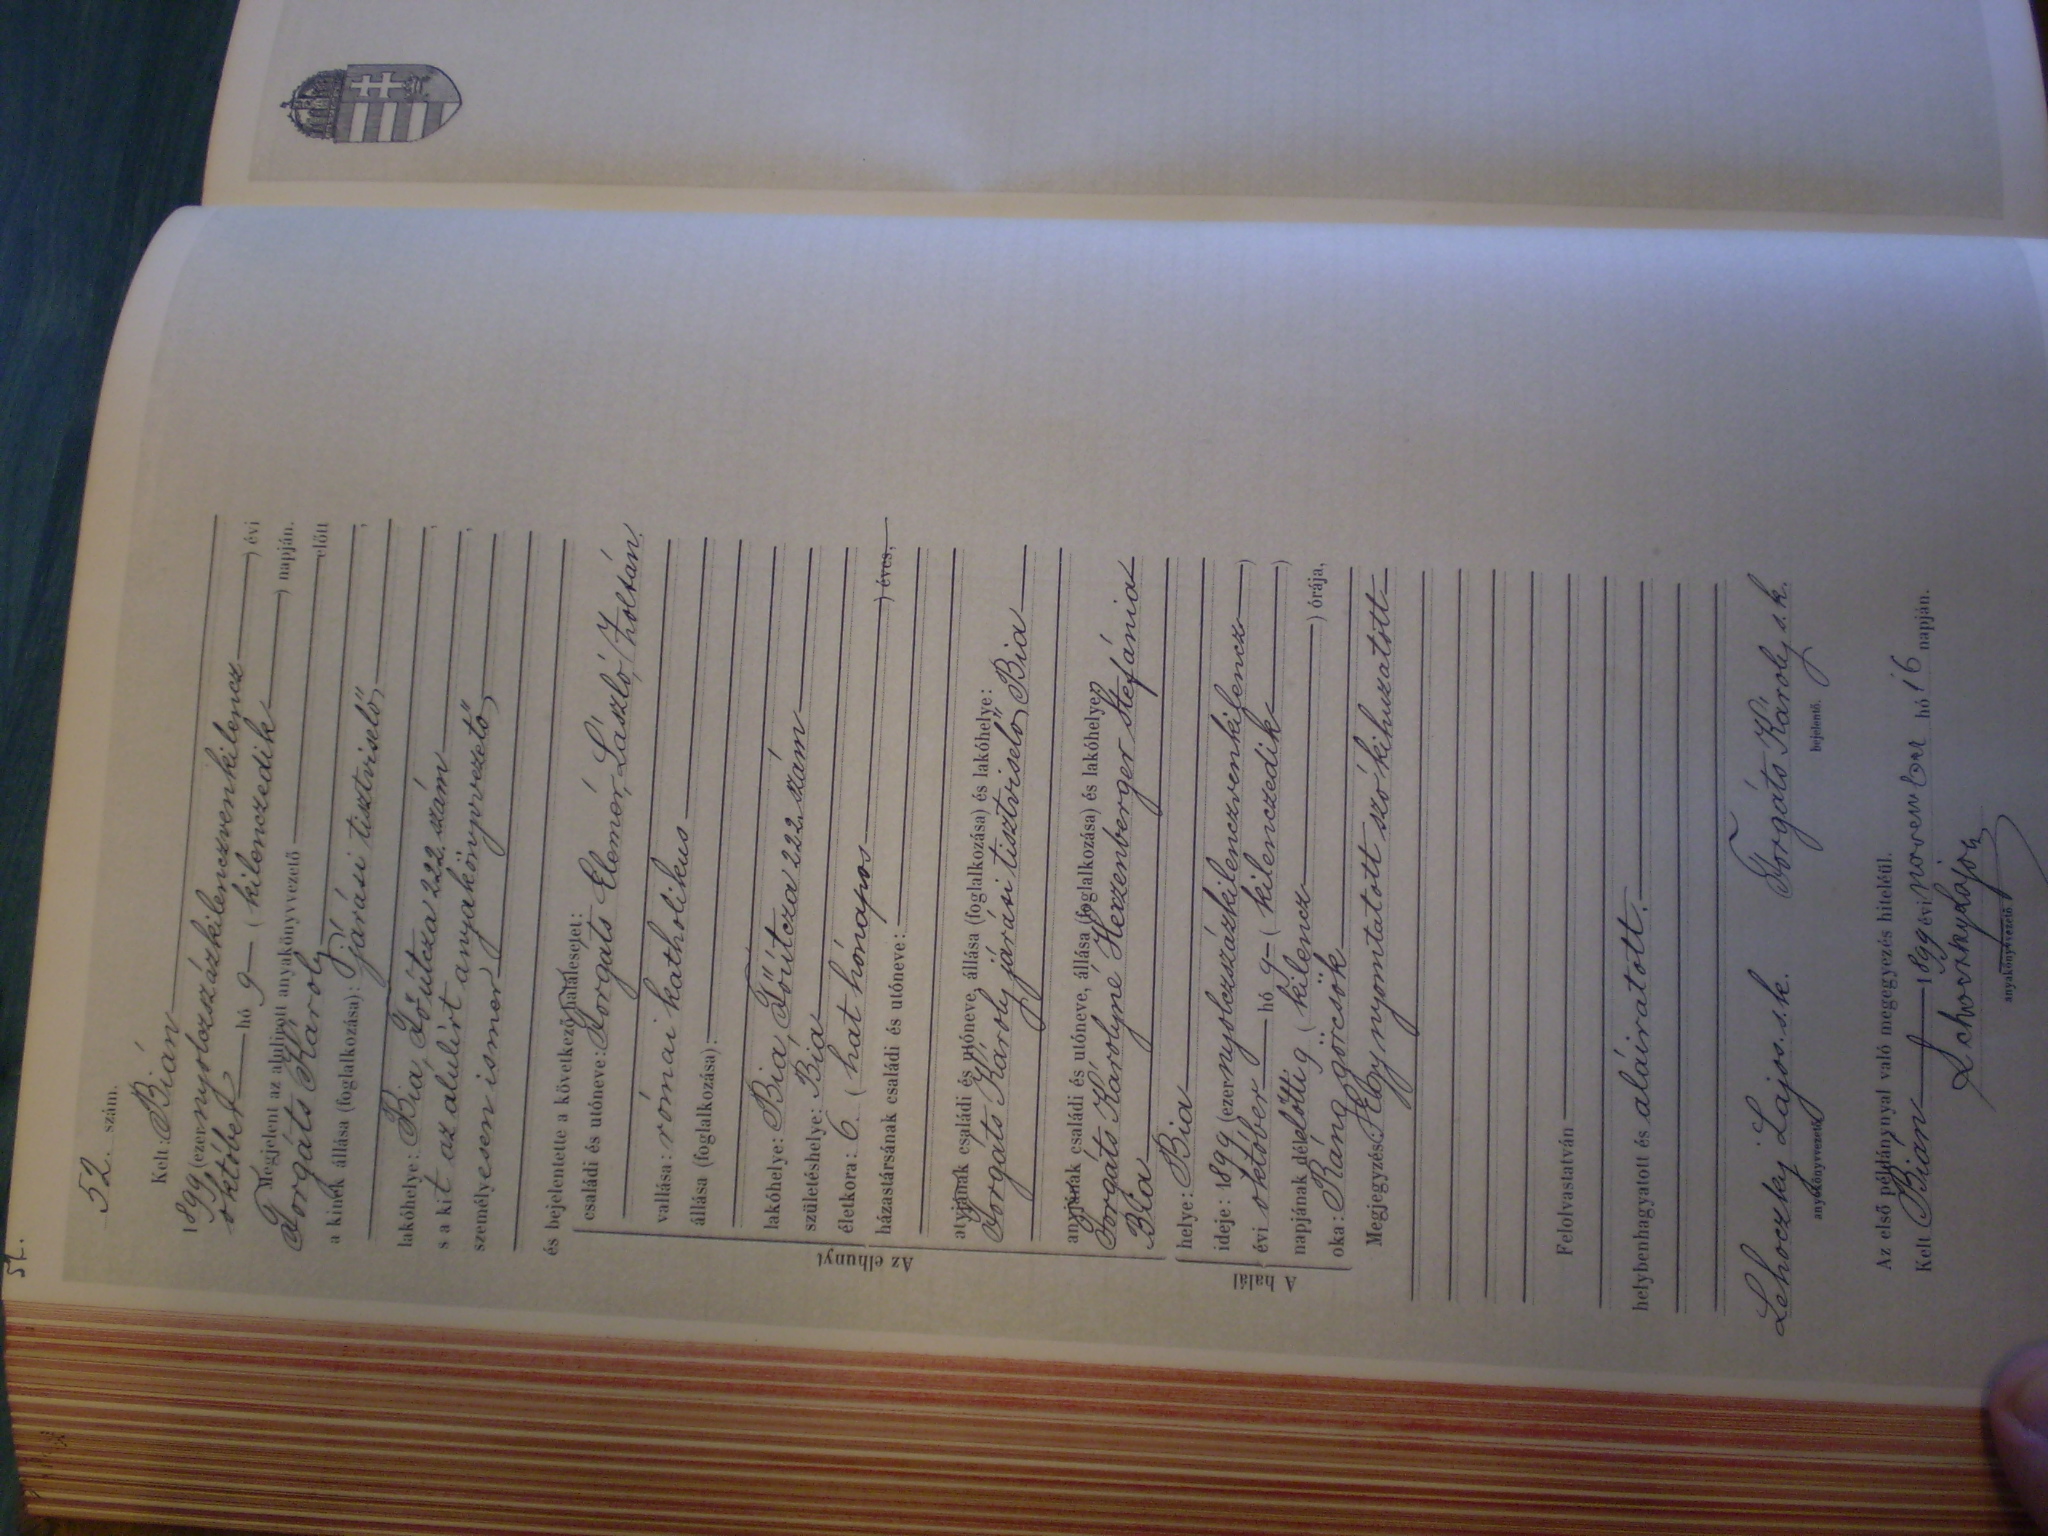 52.
52. szám.
Kelt: Bián
1899 (ezernyolczszázkilenczvenkilencz) évi
október hó 9 (kilenczedik) napján.
Megjelent az alulirott anyakönyvvezető előtt
Forgáts Károly
a kinek állása (foglalkozása): járási tisztviselő,
lakóhelye: Bia, Főútcza 222. szám,
s a kit az alulírt anyakönyvvezető
személyesen ismer,
és bejelentette a következő halálesetet:
Az elhunyt
családi és utóneve: Forgáts Elemér, László, Zoltán,
vallása: római katholikus
állása (foglalkozása):
lakóhelye: Bia, Főútcza 222. szám
születéshelye: Bia
életkora: 6 (hat hónapos) éves,
házastársának családi és utóneve:
atyjának családi és utóneve, állása (foglalkozása) és lakóhelye:
Forgáts Károly járási tisztviselő, Bia
anyjának családi és utóneve, állása (foglalkozása) és lakóhelye:
Forgáts Károlyné Herzenberger Stefánia
Bia
A halál
helye: Bia
ideje: 1899 (ezernyolczszázkilenczvenkilencz)
évi október hó 9 (kilenczedik)
napjának délelőtti 9 (kilencz) órája,
oka: Ráng görcsök
Megjegyzés: Egy nyomtatott szó kihuzatott
Felolvastatván
helybenhagyatott és aláiratott.
Lehoczky Lajos s. k. Forgáts Károly s. k.
anyakönyvvezető bejelentő.
Az első példánynyal való megegyezés hiteléül.
Kelt Bian 1899 évi november hó 16 napján.
Lehoczky Lajos
anyakönyvvezető